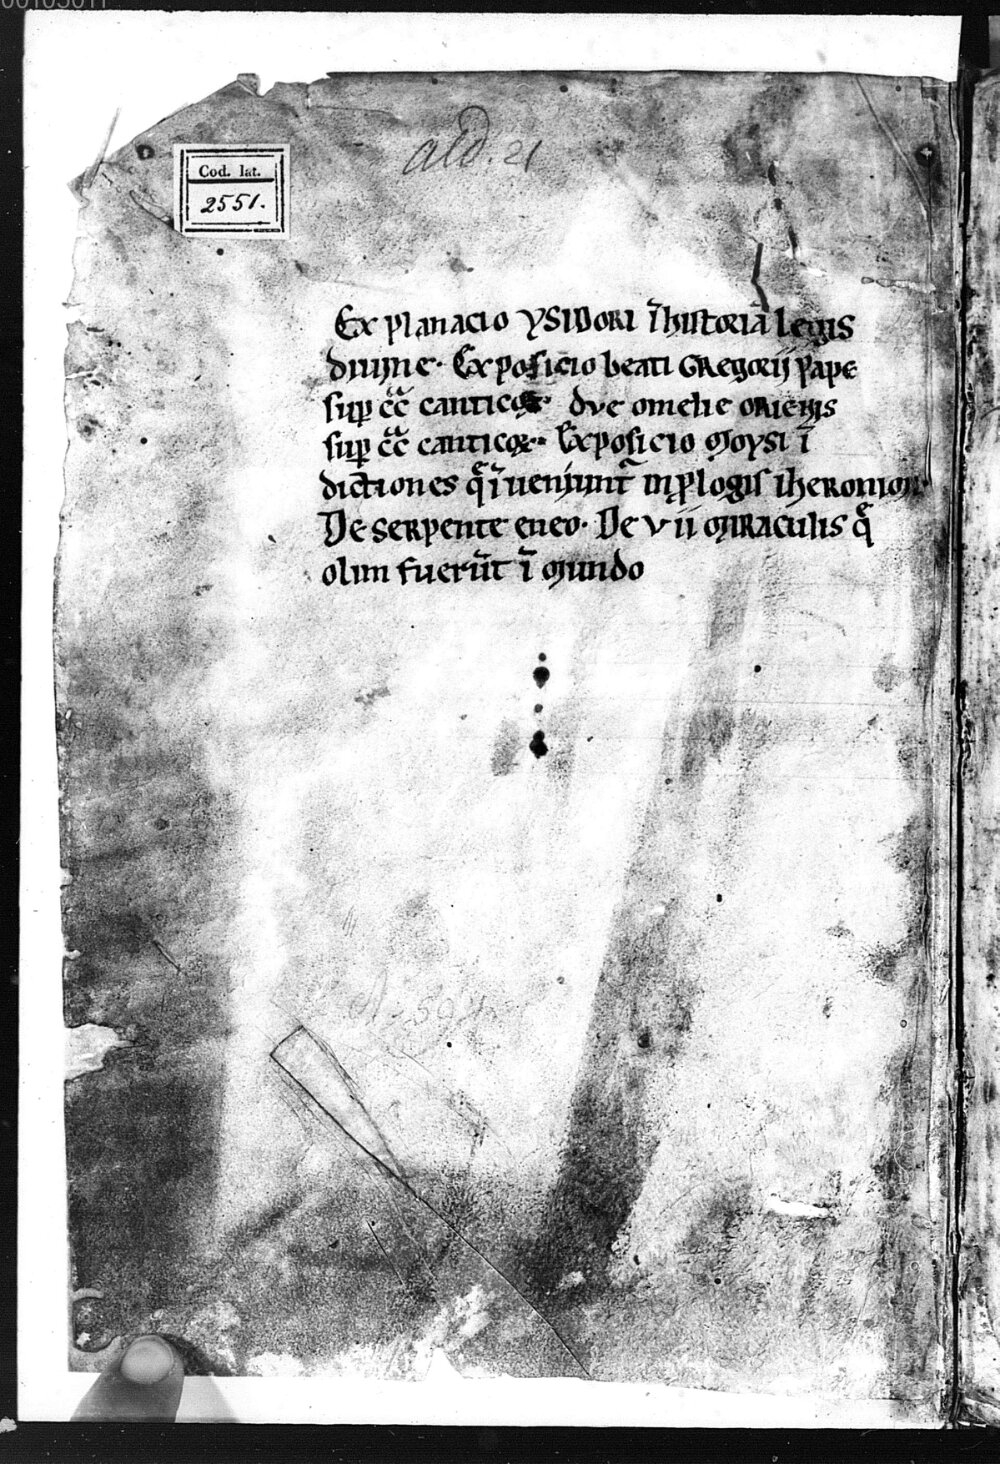 00103011
ald. 21
Cod. lat.
2551.
Explanacio ysidori ī historiā legis
diuine. Exposicio beati Gregorij pape
sup cc̄ canticoꝝ. due omelie orienis
sup cc̄ canticoꝝ. Exposicio Moysi ī
dictiones q̄ īueniunt̄ in plogis iheronimi
De serpente eneo. De vii miraculis q̄
olim fuerūt ī mundo